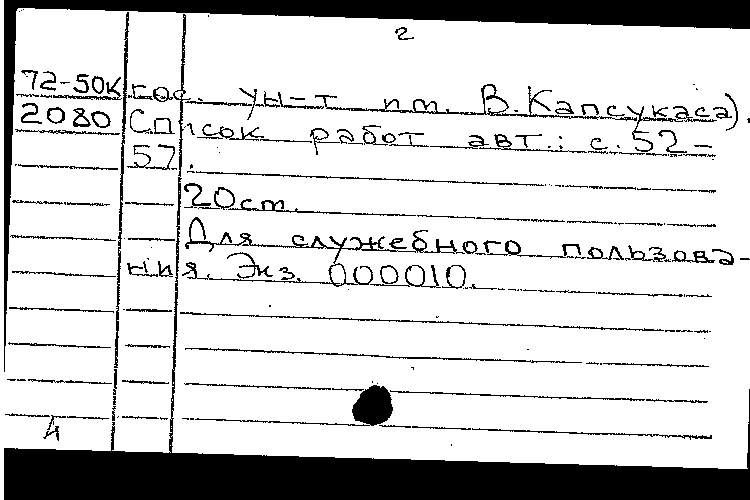 2
72-50к гос. ун-т им. В.Капсукаса).
2080 Список работ авт.: с.52-
57.
20см.
Для служебного пользова-
ния. Экз. 000010.
А